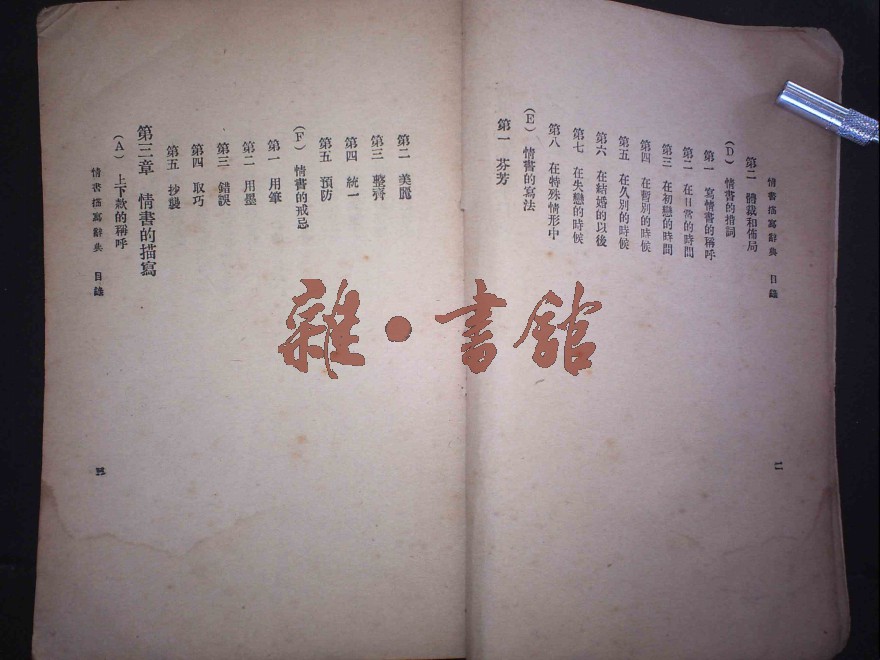 情書描寫辭典 目錄
第二 體裁和佈局
(D) 情書的措詞
第一 寫情書的稱呼
第二 在日常的時間
第三 在初戀的時間
第四 在暫別的時候
第五 在久別的時候
第六 在結婚的以後
第七 在失戀的時候
第八 在特殊情形中
(E) 情書的寫法
第一 芬芳
二
第二 美麗
第三 整齊
第四 統一
第五 預防
(F) 情書的戒忌
第一 用筆
第二 用墨
第三 錯誤
第四 取巧
第五 抄襲
第三章 情書的描寫
(A) 上下款的稱呼
情書描寫辭典 目錄
三
雜·書館